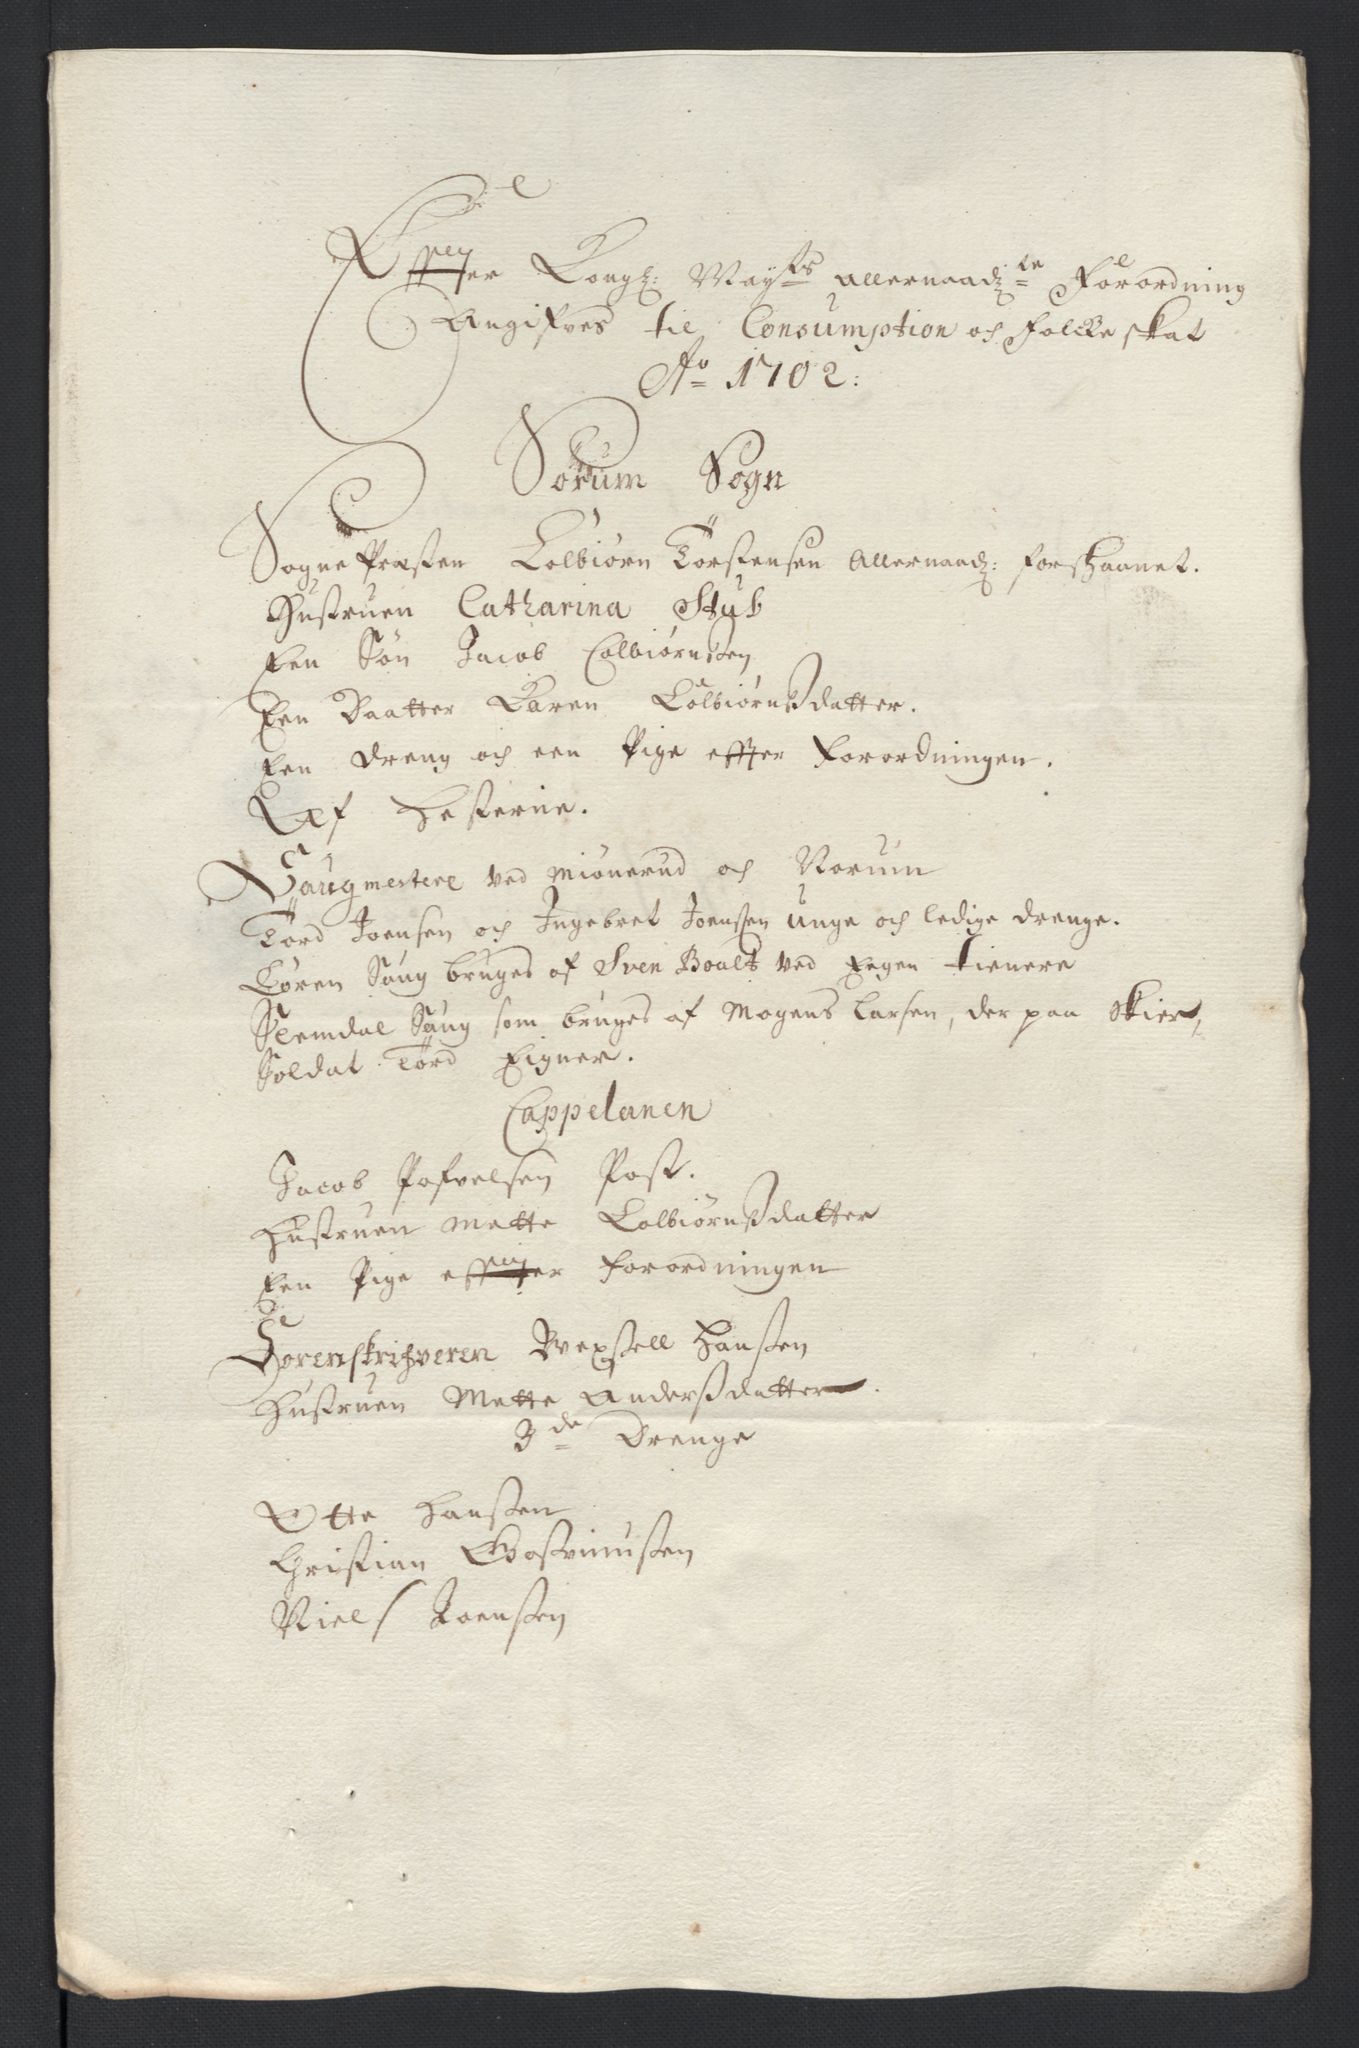 Effter Kongl: Mayts allernaadigste Forordning
Angifves til Consumption och Folcke skat
Ao 1702:
Sørum Sogn
Sogne Præsten Colbiørn Torstensen Allernaad: forskaanet.
Hustruen Catharina Stub
Een Søn Jacob Colbiørnsen
Een Daatter Karen Colbiørnsdatter.
Een dreng och een Pige effter Forordningen.
Hesterne.
Saugmestere ved Miønerud och Rorum
Tord Joensen och Ingebret Joenssen unge och ledige drenge.
Saug bruges af Sven Boalt ved Eegen tienere
Slemdal Saug som bruges af Mogens Larsen, der paa Skier,
Soldat Tord Eigner.
Cappelanen
Jacob Pofvelsen Post.
Hustruen Mette Colbiørnsdatter
Een Pige effter Forordningen
Sorenskrifveren Wexsell Hansen
Hustruen Mette Andersdatter.
3de Drenge
Otte Hansen
Christian Gostvinusen
Niels Joensen